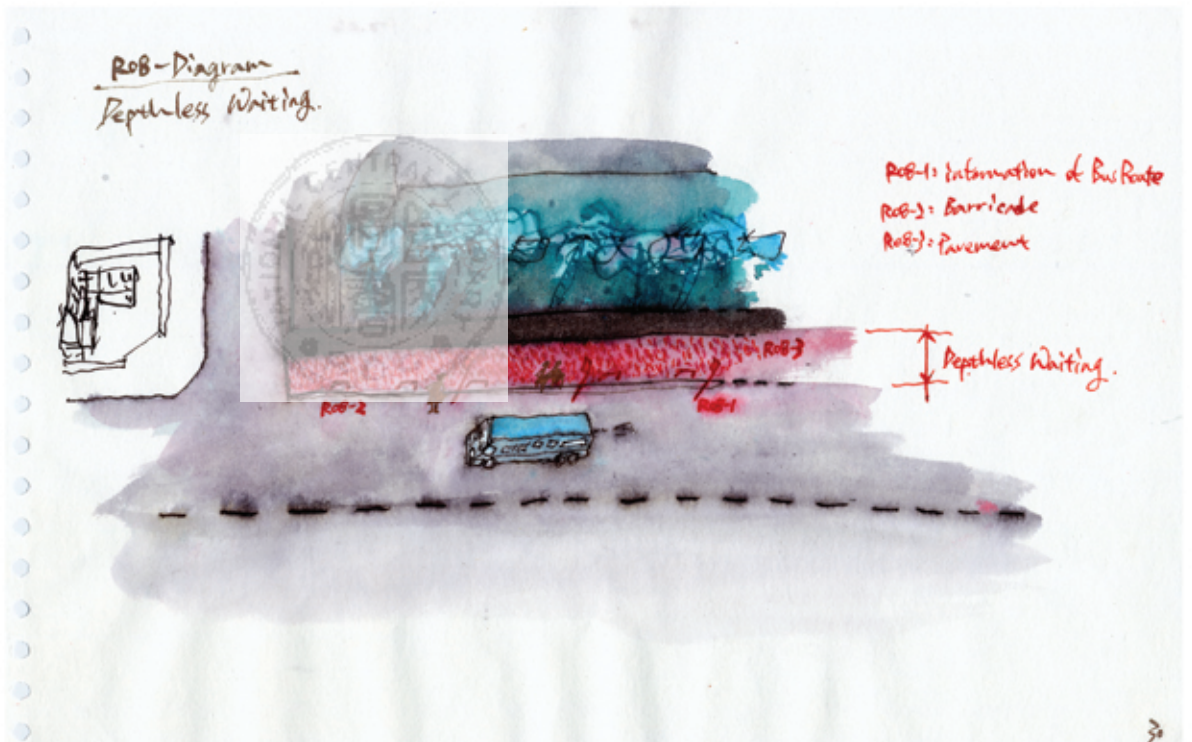 ROB-Diagram
Depthless Waiting.
ROB-1: Information of Bus Route
ROB-2: Barricade
ROB-3: Pavement
ROB-3
Depthless Waiting.
ROB-2
ROB-1
30